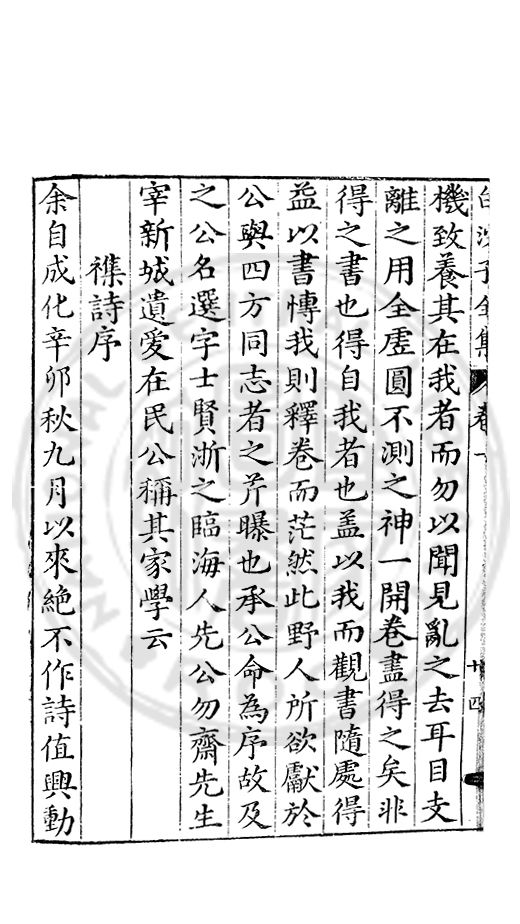 白沙子全集 卷一 十四
機致養其在我者而勿以聞見亂之去耳目支
離之用全虛圓不測之神一開卷盡得之矣非
得之書也得自我者也盖以我而觀書隨處得
益以書博我則釋卷而茫然此野人所欲獻於
公與四方同志者之芹曝也承公命為序故及
之公名選字士賢浙之臨海人先公勿齋先生
宰新城遺愛在民公稱其家學云
襍詩序
余自成化辛卯秋九月以來絶不作詩值興動